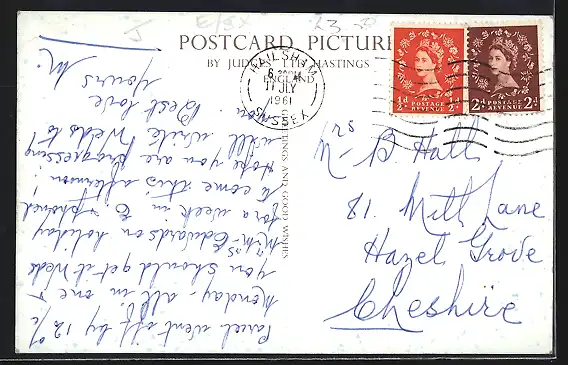 E/SX
POSTCARD PICTURE
BY JUDGES LTD HASTINGS
HAILSHAM
ENGLAND
11 JLY
1961
SUSSEX
½d POSTAGE ½d
REVENUE
2d POSTAGE 2d
REVENUE
TINGS AND GOOD WISHES
Parcel went off by 12 o/c
Monday - all in one &
you should get it Weds
Edwards on holiday
for a week in E & phoned
to come this afternoon!
Hope you are progressing
will write Weds to
you. Best love
Yours
M.
Mrs B. Hall
81. Mill Lane
Hazel Grove
Cheshire